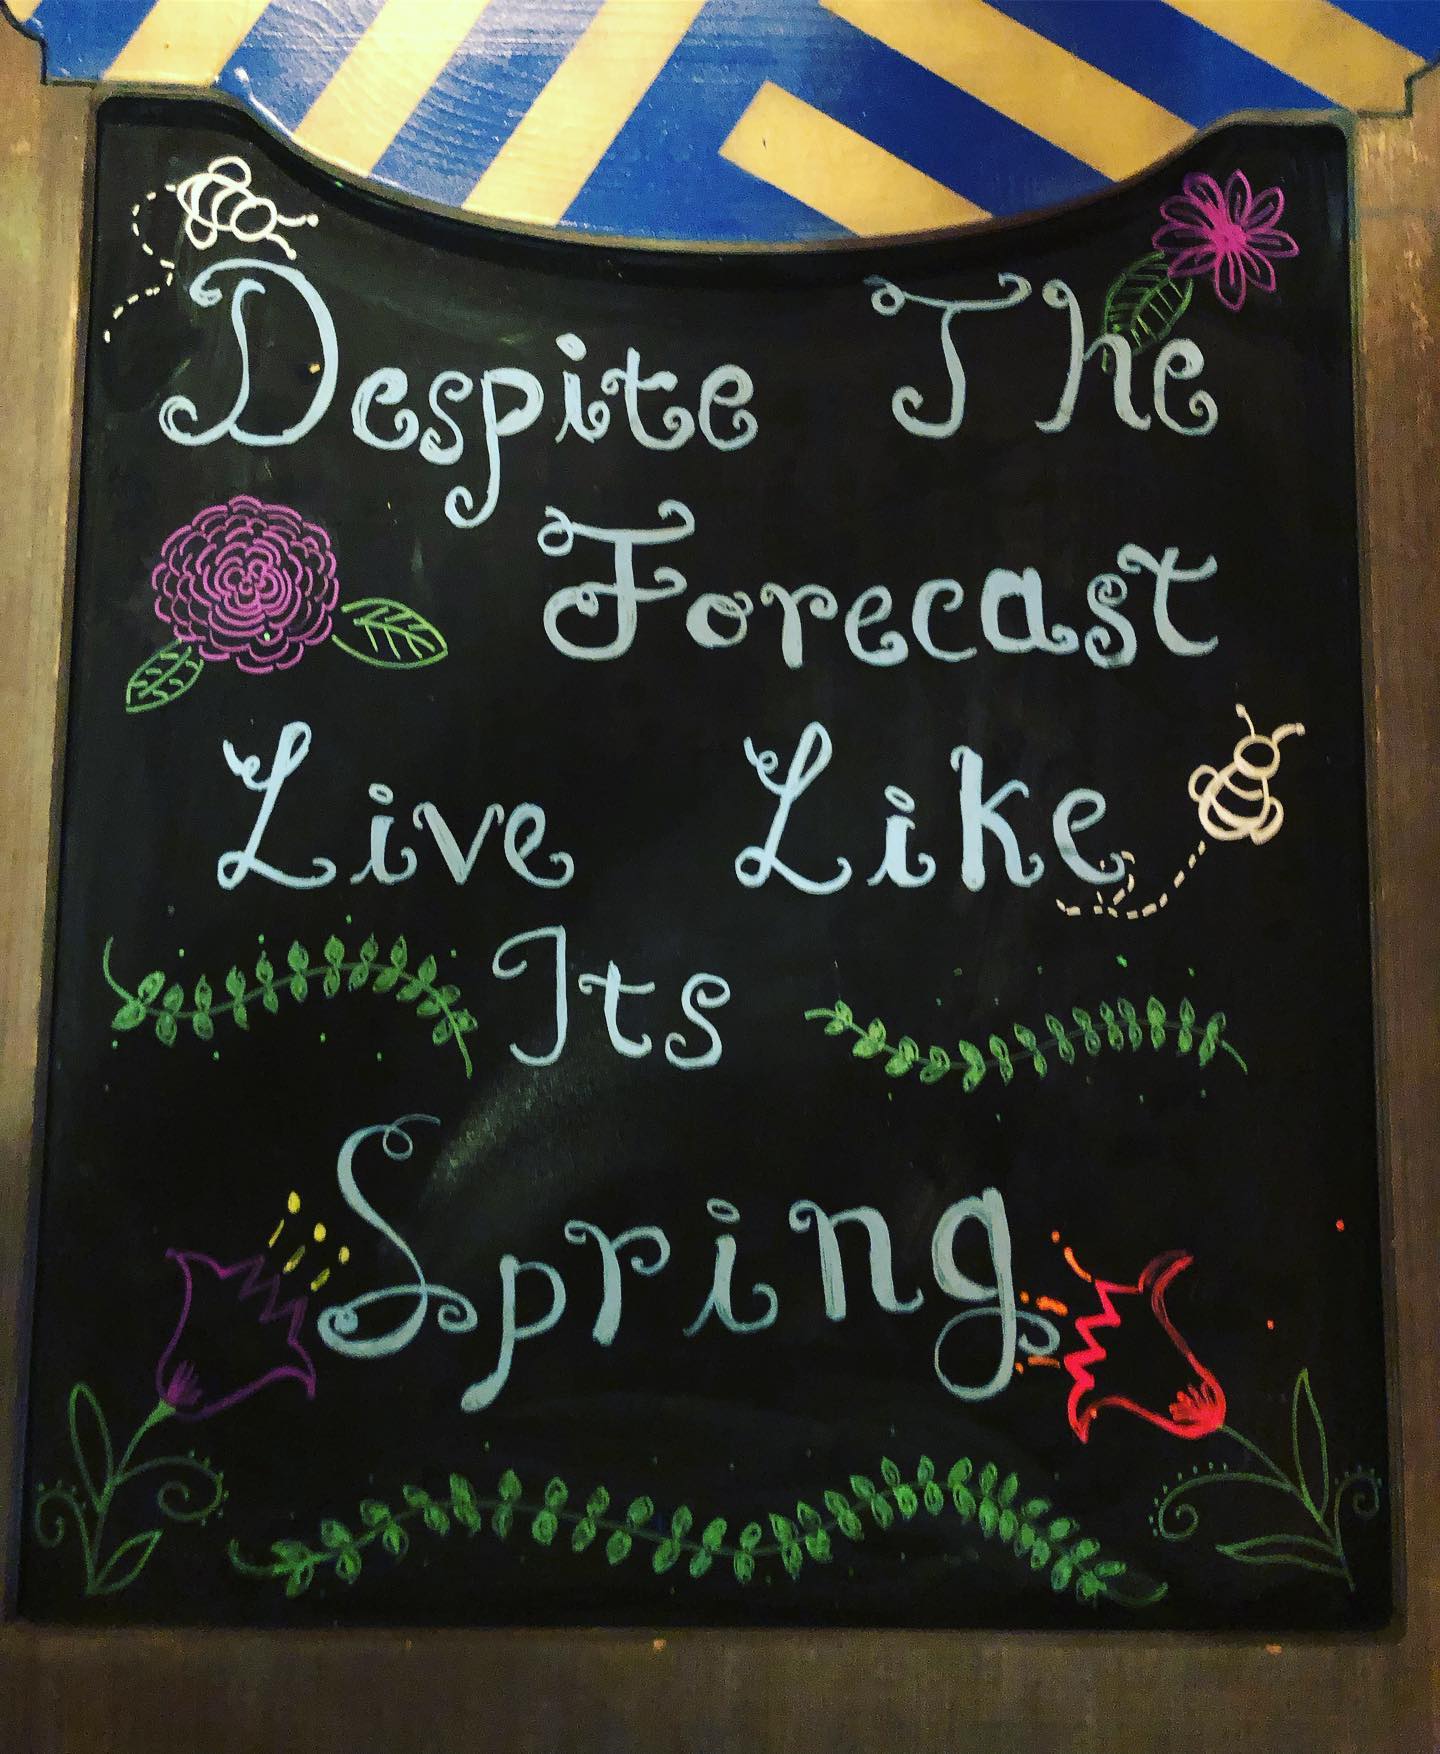 Despite The
Forecast
Live Like
Its
Spring